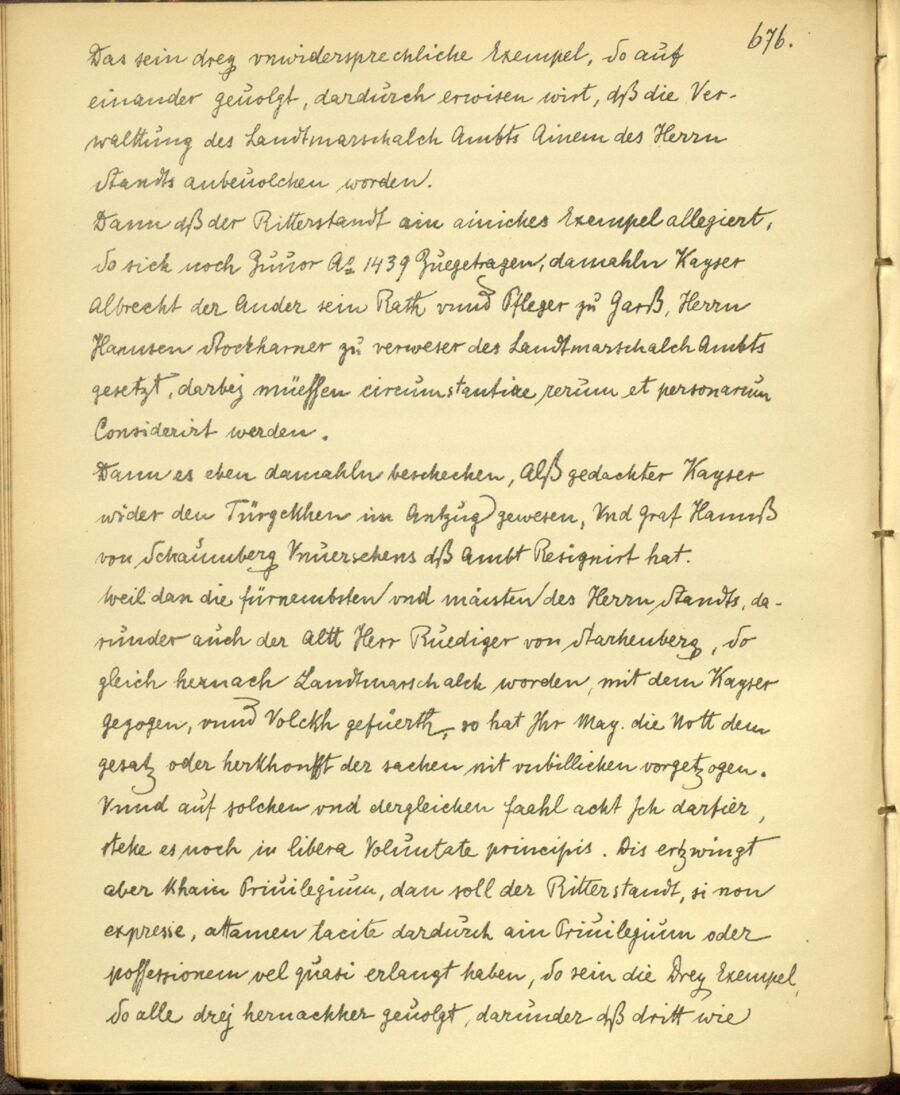 676.
Das sein dreÿ vnwidersprechliche Exempel, So auf
einander geuolgt, dardurch erwisen wirt, dß die Ver-
walttung des Landtmarschalch Ambts Ainem des Herrn
Standts anbeuolchen worden.
Dann dß der Ritterstandt ain ainiches Exempel allegiert,
So sich noch Zuuor Aº 1439 Zuegetragen, damahln Kayser
Albrecht der Ander sein Rath vnnd Pfleger zu Garß, Herrn
Hannsen Stockharner zu verweser des Landtmarschalch Ambts
gesetzt, darbej müessen circumstantiae rerum et personarum
Considerirt werden.
Dann es eben damahln beschechen, Alß gedachter Kayser
wider den Türgckhen im Antzug gewesen, Vnd Graf Hannß
von Schaumberg Vnuersehens dß Ambt Resignirt hat.
Weil dan die fürnembsten vnd maisten des Herrn Standts, da-
runder auch der Altt Herr Ruediger von Starhenberg, So
gleich hernach Landtmarschalch worden, mit dem Kayser
gezogen, vnnd Volckh gefüerth, so hat Ihr May. die Nott dem
gesatz oder herkhonfft der sachen nit vnbillichen vorgetzogen.
Vnnd auf solchen vnd dergleichen faahl acht Ich darfier,
stehe es noch in libera Voluntate principis. Dis ertzwingt
aber khain Priuilegium, dan soll der Ritterstandt, si non
expresse, attamen tacite dardurch ain Priuilegium oder
possessionem vel quasi erlangt haben, So sein die Drey Exempel,
So alle drej hernachher geuolgt, darunder dß dritt wie